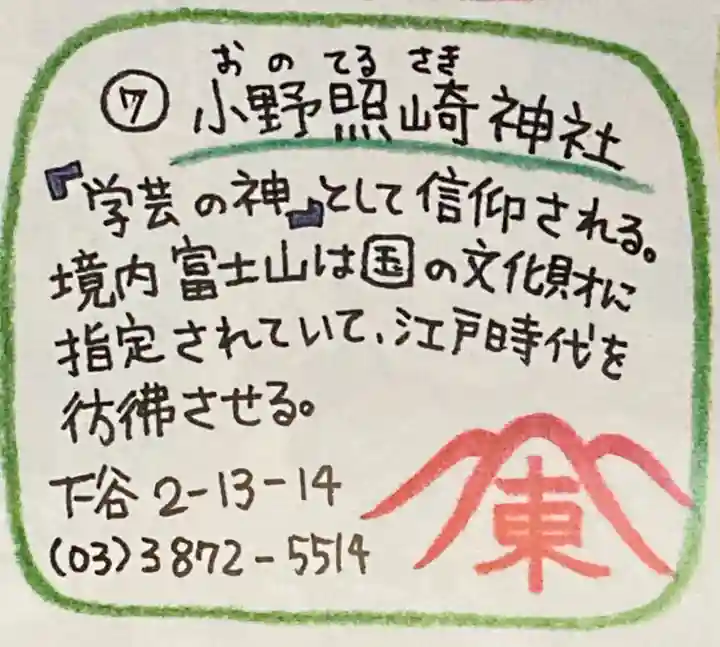 おのてるさき
⑦ 小野照崎神社
『学芸の神』として信仰される。
境内富士山は国の文化財に
指定されていて、江戸時代を
彷彿させる。
下谷 2-13-14
(03)3872-5514
東